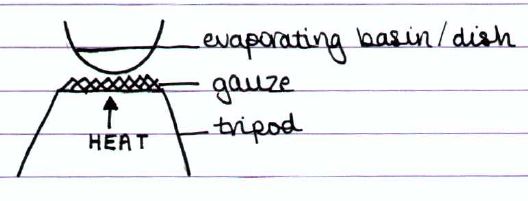 evaporating basin/dish
gauze
HEAT
tripod